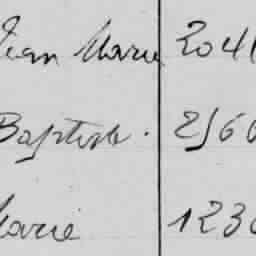 Jean Marie 204
Baptiste. 256
Marie 123